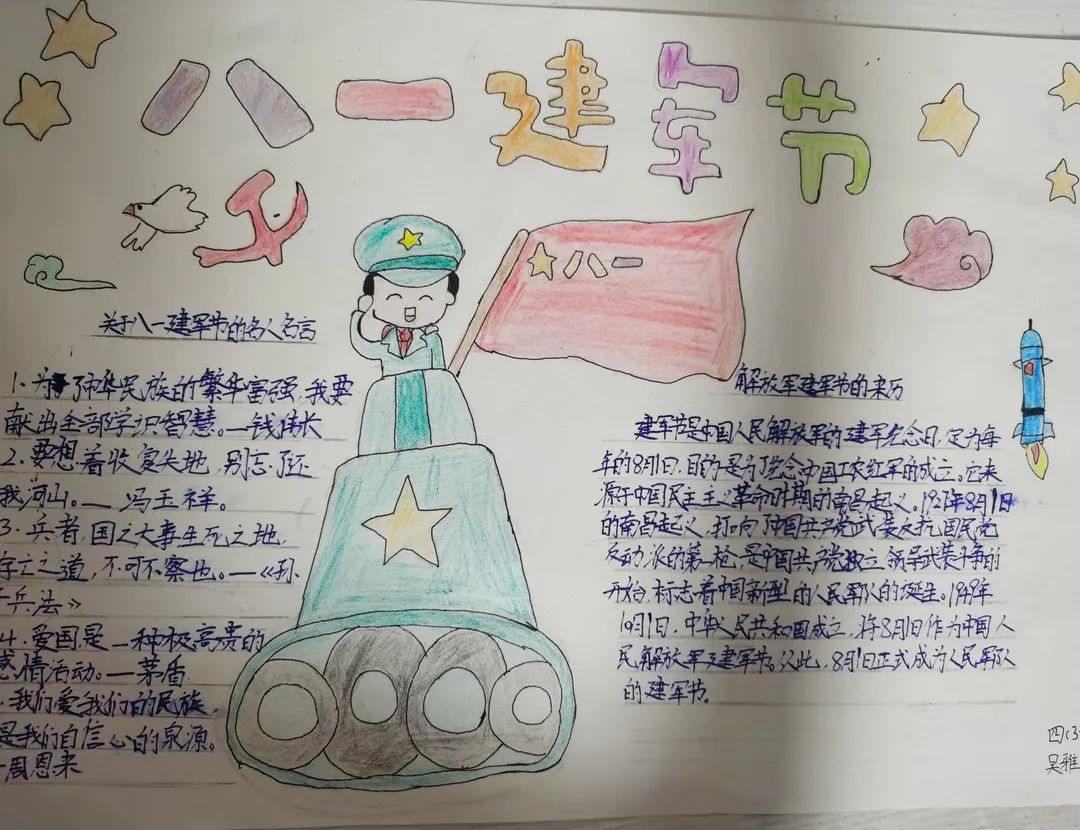 八一建军节
八一
关于八一建军节的名人名言
1.为了中华民族的繁华富强,我要
献出全部学识智慧。—钱伟长
2.要想着收复失地,别忘了还
我河山。—冯玉祥。
3.兵者,国之大事生死之地,
存亡之道,不可不察也。—《孙
子兵法》
4.爱国是一种极高贵的
感情活动。—茅盾
.我们爱我们的民族,
是我们自信心的泉源。
—周恩来
解放军建军节的来历
建军节是中国人民解放军的建军纪念日,定为每
年的8月1日,目的是为了纪念中国工农红军的成立。它来
源于中国民主主义革命时期的南昌起义。1927年8月1日
的南昌起义,打响了中国共产党武装反抗国民党
反动派的第一枪,是中国共产党独立领导武装斗争的
开始,标志着中国新型的人民军队的诞生。1949年
10月1日,中华人民共和国成立,将8月1日作为中国人
民解放军建军节。从此,8月1日正式成为人民军队
的建军节。
四(3
吴雅